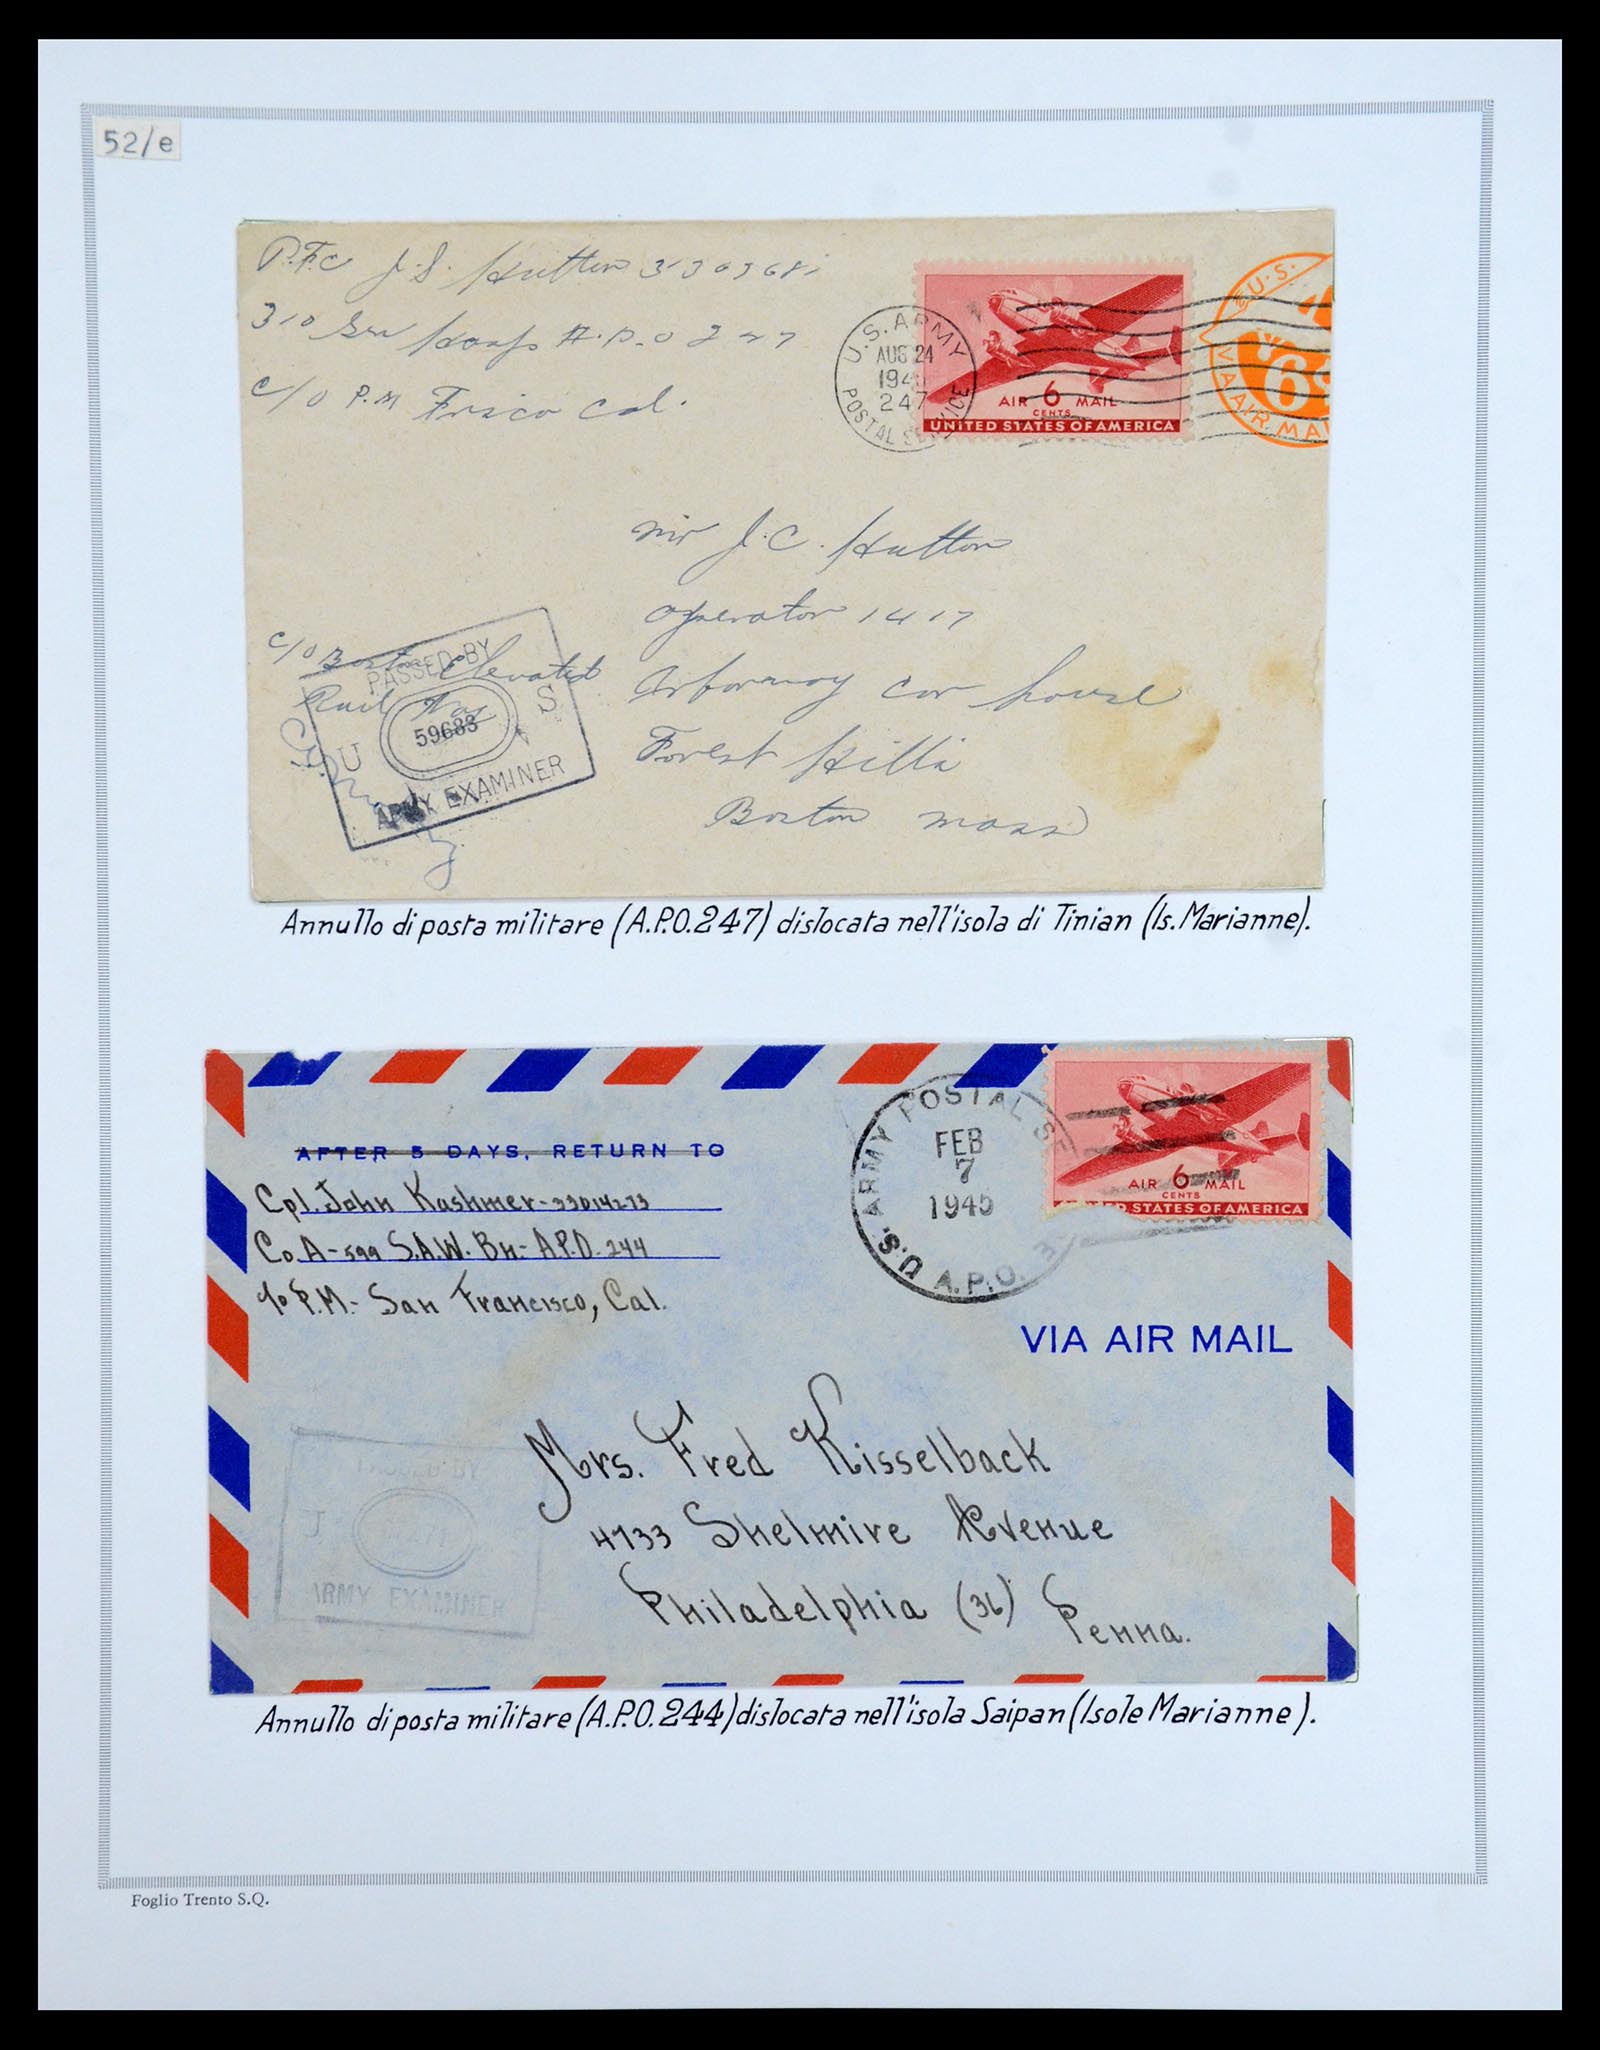 52/e
P.F.C J. S. Hutton
310 Gen Hosp A.P.O 247
c/o P.M Frisco Cal.
U.S. ARMY
AUG 24
194
247
POSTAL SERVICE
AIR 6 MAIL
CENTS
UNITED STATES OF AMERICA
U.S.
6¢
VIA AIR MAIL
Mr J. C. Hutton
Operator 1417
c/o Boston Elevated
Arborway car house
Rail Way
Forest Hills
Boston Mass
PASSED BY
U S
59683
ARMY EXAMINER
Annullo di posta militare (A.P.O. 247) dislocata nell'isola di Tinian (Is. Marianne).
AFTER 5 DAYS, RETURN TO
Cpl. John Kashmer - 33014273
Co. A - 599 S.A.W. Bn. - A.P.O. 244
c/o P.M. - San Francisco, Cal.
U.S. ARMY POSTAL SE
FEB
7
1945
A.P.O.
AIR 6 MAIL
CENTS
STATES OF AMERICA
VIA AIR MAIL
Mrs. Fred Kisselback
4733 Shelmire Avenue
Philadelphia (36) Penna.
PASSED BY
ARMY EXAMINER
Annullo di posta militare (A.P.O. 244) dislocata nell'isola Saipan (Isole Marianne).
Foglio Trento S.Q.